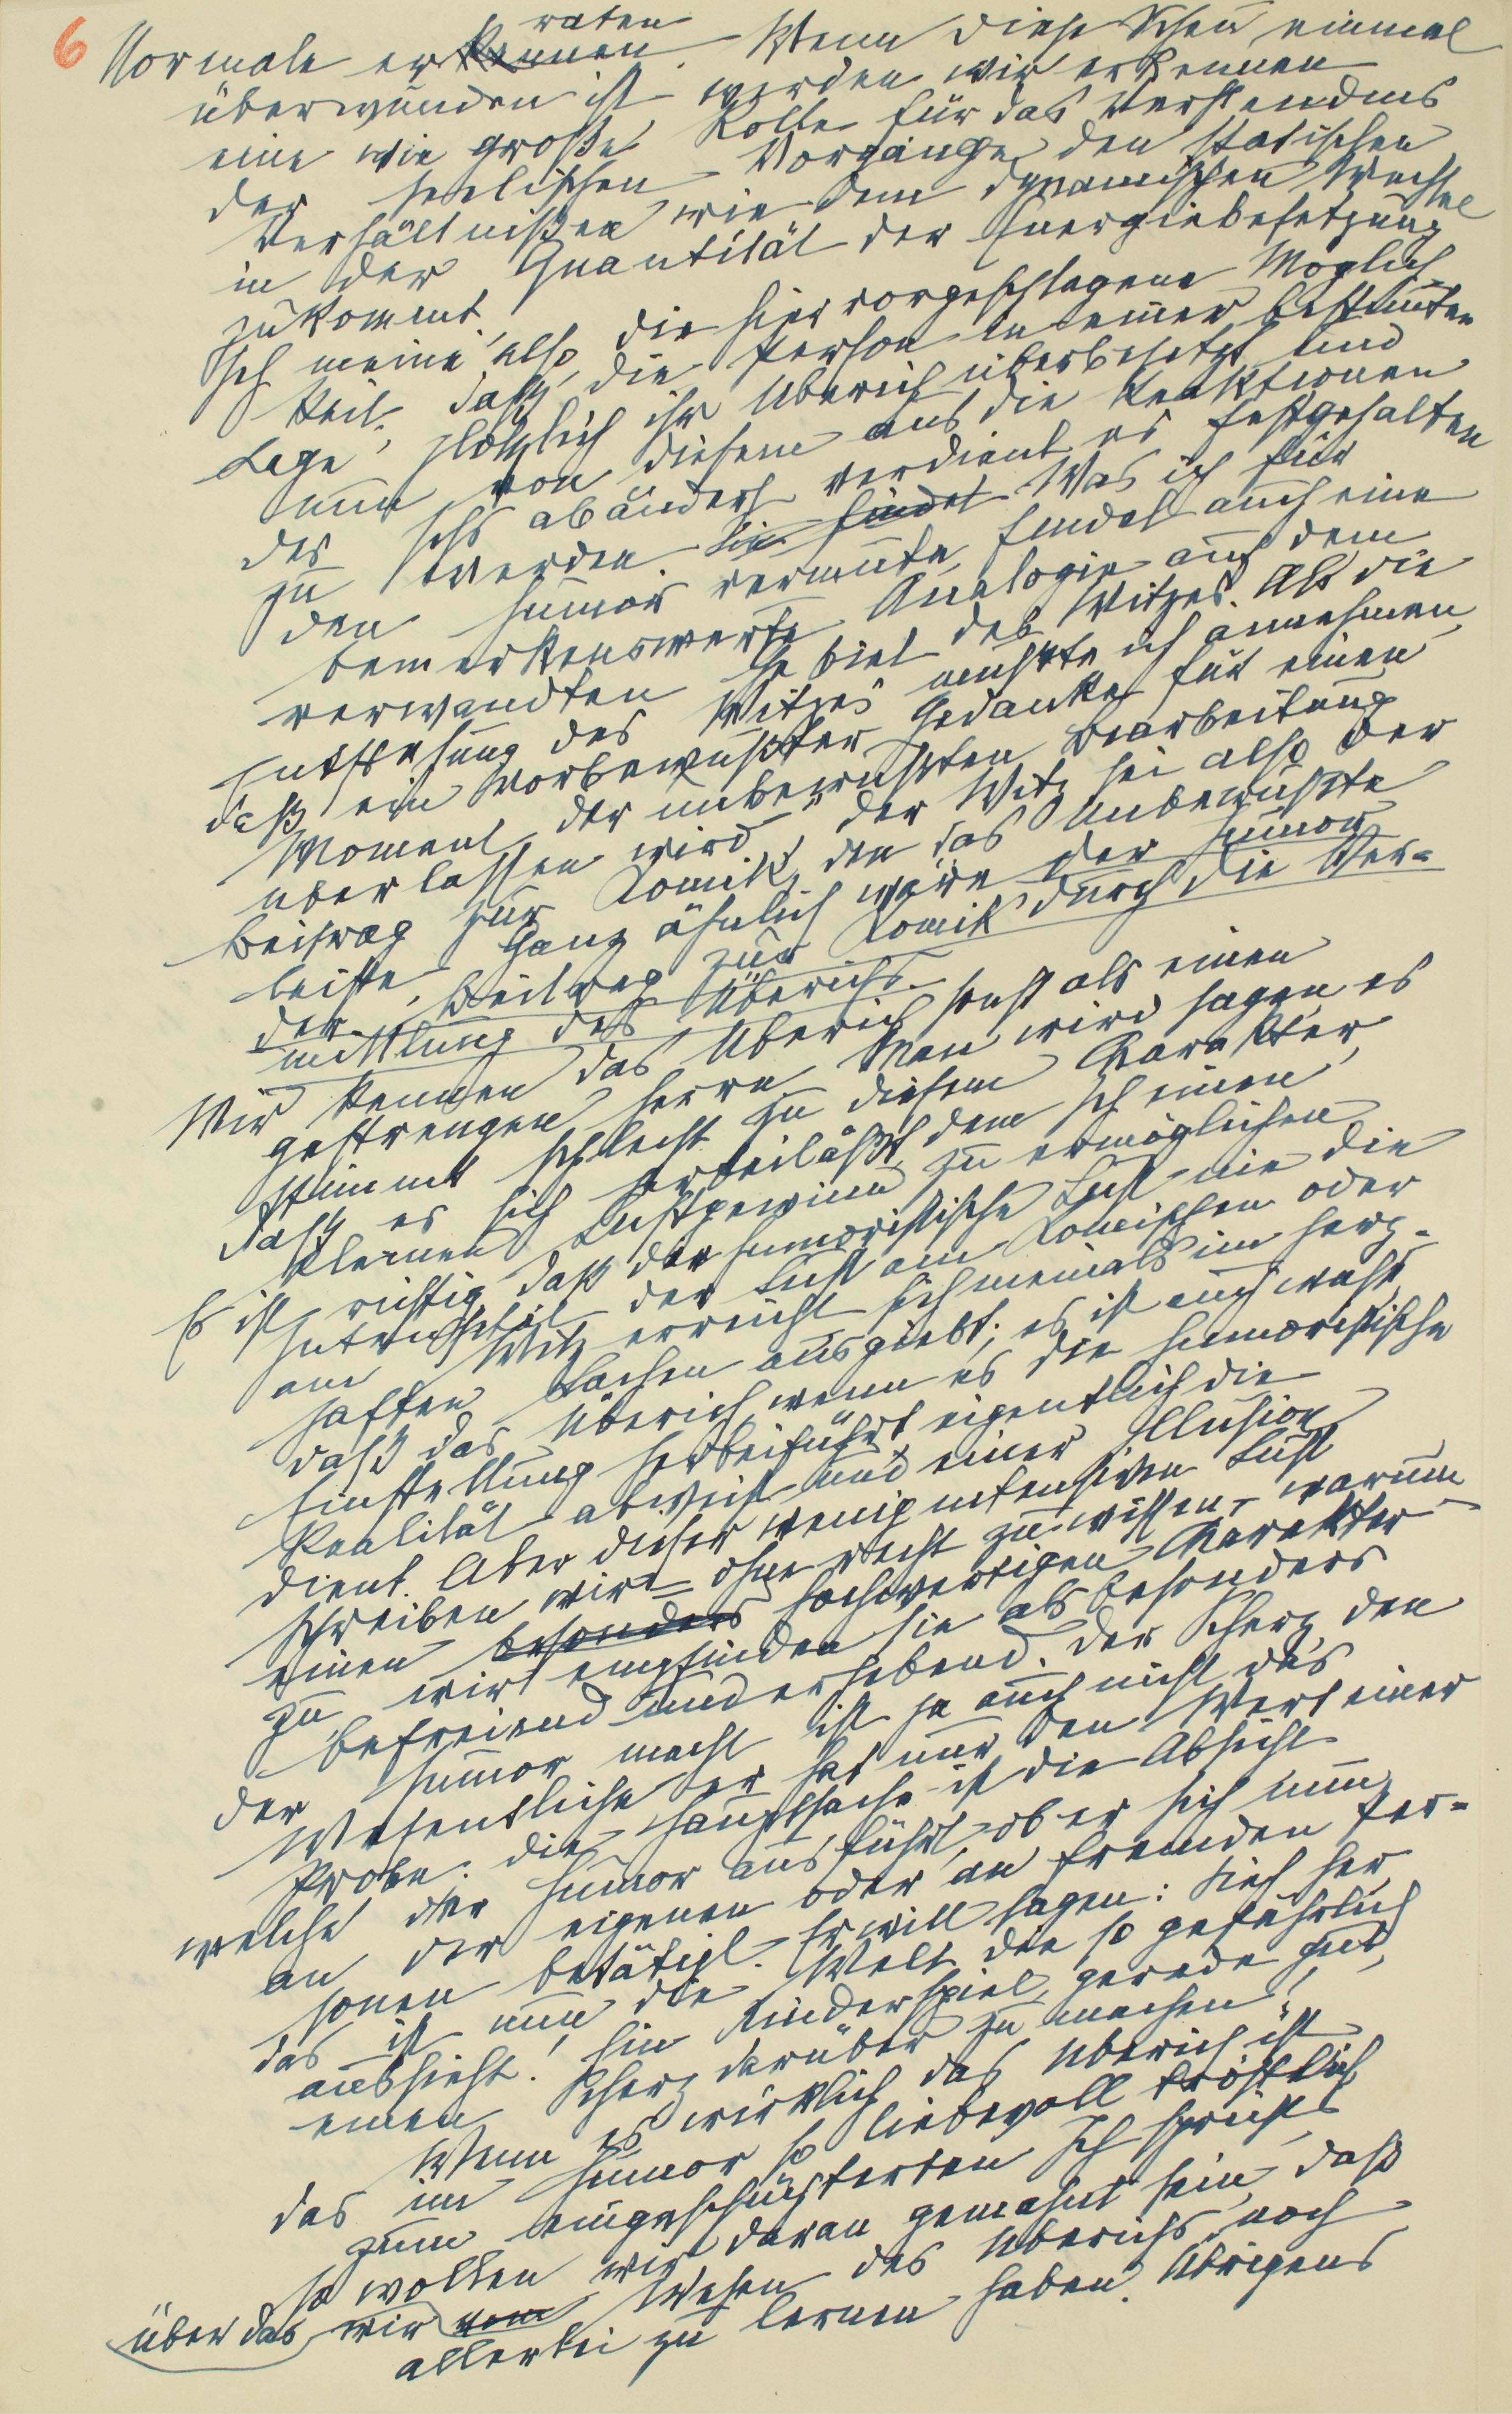 6 Normale erkennen raten. Wenn diese Scheu einmal
überwunden ist, werden wir erkennen
eine wie große Rolle für das Verständnis
der seelischen Vorgänge den statischen
Verhältnißen wie dem dynamischen Wechsel
in der Quantität der Energiebesetzung
zukommt.
Ich meine also, die hier vorgeschlagene Möglich-
keit, daß die Person in einer bestimmten
Lage plötzlich ihr Überich überbesetzt und
nun von diesem aus die Reaktionen
des Ichs abändert verdient es festgehalten
zu werden. Sie findet Was ich für
den Humor vermute, findet auch eine
bemerkenswerte Analogie auf dem
verwandten Gebiet des Witzes. Als die
Entstehung des Witzes mußte ich annehmen,
daß ein vorbewußter Gedanke für einen
Moment der unbewußten Bearbeitung
überlassen wird, der Witz sei also der
Beitrag zur Komik, den das Unbewußte
leiste. Ganz ähnlich wäre der Humor
der Beitrag zur Komik durch die Ver=
mittlung des Überichs.
Wir kennen das Überich sonst als einen
gestrengen Herrn. Man wird sagen, es
stimmt schlecht zu diesem Charakter,
daß es sich herbeiläßt, dem Ich einen
kleinen Lustgewinn zu ermöglichen.
Es ist richtig, daß die humoristische Lust nie die
Intensität der Lust am Komischen oder
am Witz erreicht sich niemals im herz-
haften Lachen ausgiebt; es ist auch wahr,
daß das Überich, wenn es die humoristische
Einstellung herbeiführt eigentlich die
Realität abweist und einer Illusion
dient. Aber dieser wenig intensiven Lust
schreiben wir – ohne recht zu wissen, warum –
einen besonders hochwertigen Charakter
zu, wir empfinden sie als besonders
befreiend und erhebend. Der Scherz, den
der Humor macht ist ja auch nicht das
Wesentliche er hat nur den Wert einer
Probe: die Hauptsache ist die Absicht
welche der Humor ausführt, ob er sich nun
an der eigenen oder an fremden Per=
sonen betätigt. Er will sagen: Sieh her,
das ist nun die Welt, die so gefährlich
aussieht! Ein Kinderspiel, gerade gut,
einen Scherz darüber zu machen!
Wenn es wirklich das Überich ist
das im Humor so liebevoll tröstlich
zum eingeschüchterten Ich spricht,
so wollen wir daran gemahnt sein, daß
über das wir vom Wesen des Überichs noch
allerlei zu lernen haben. Übrigens